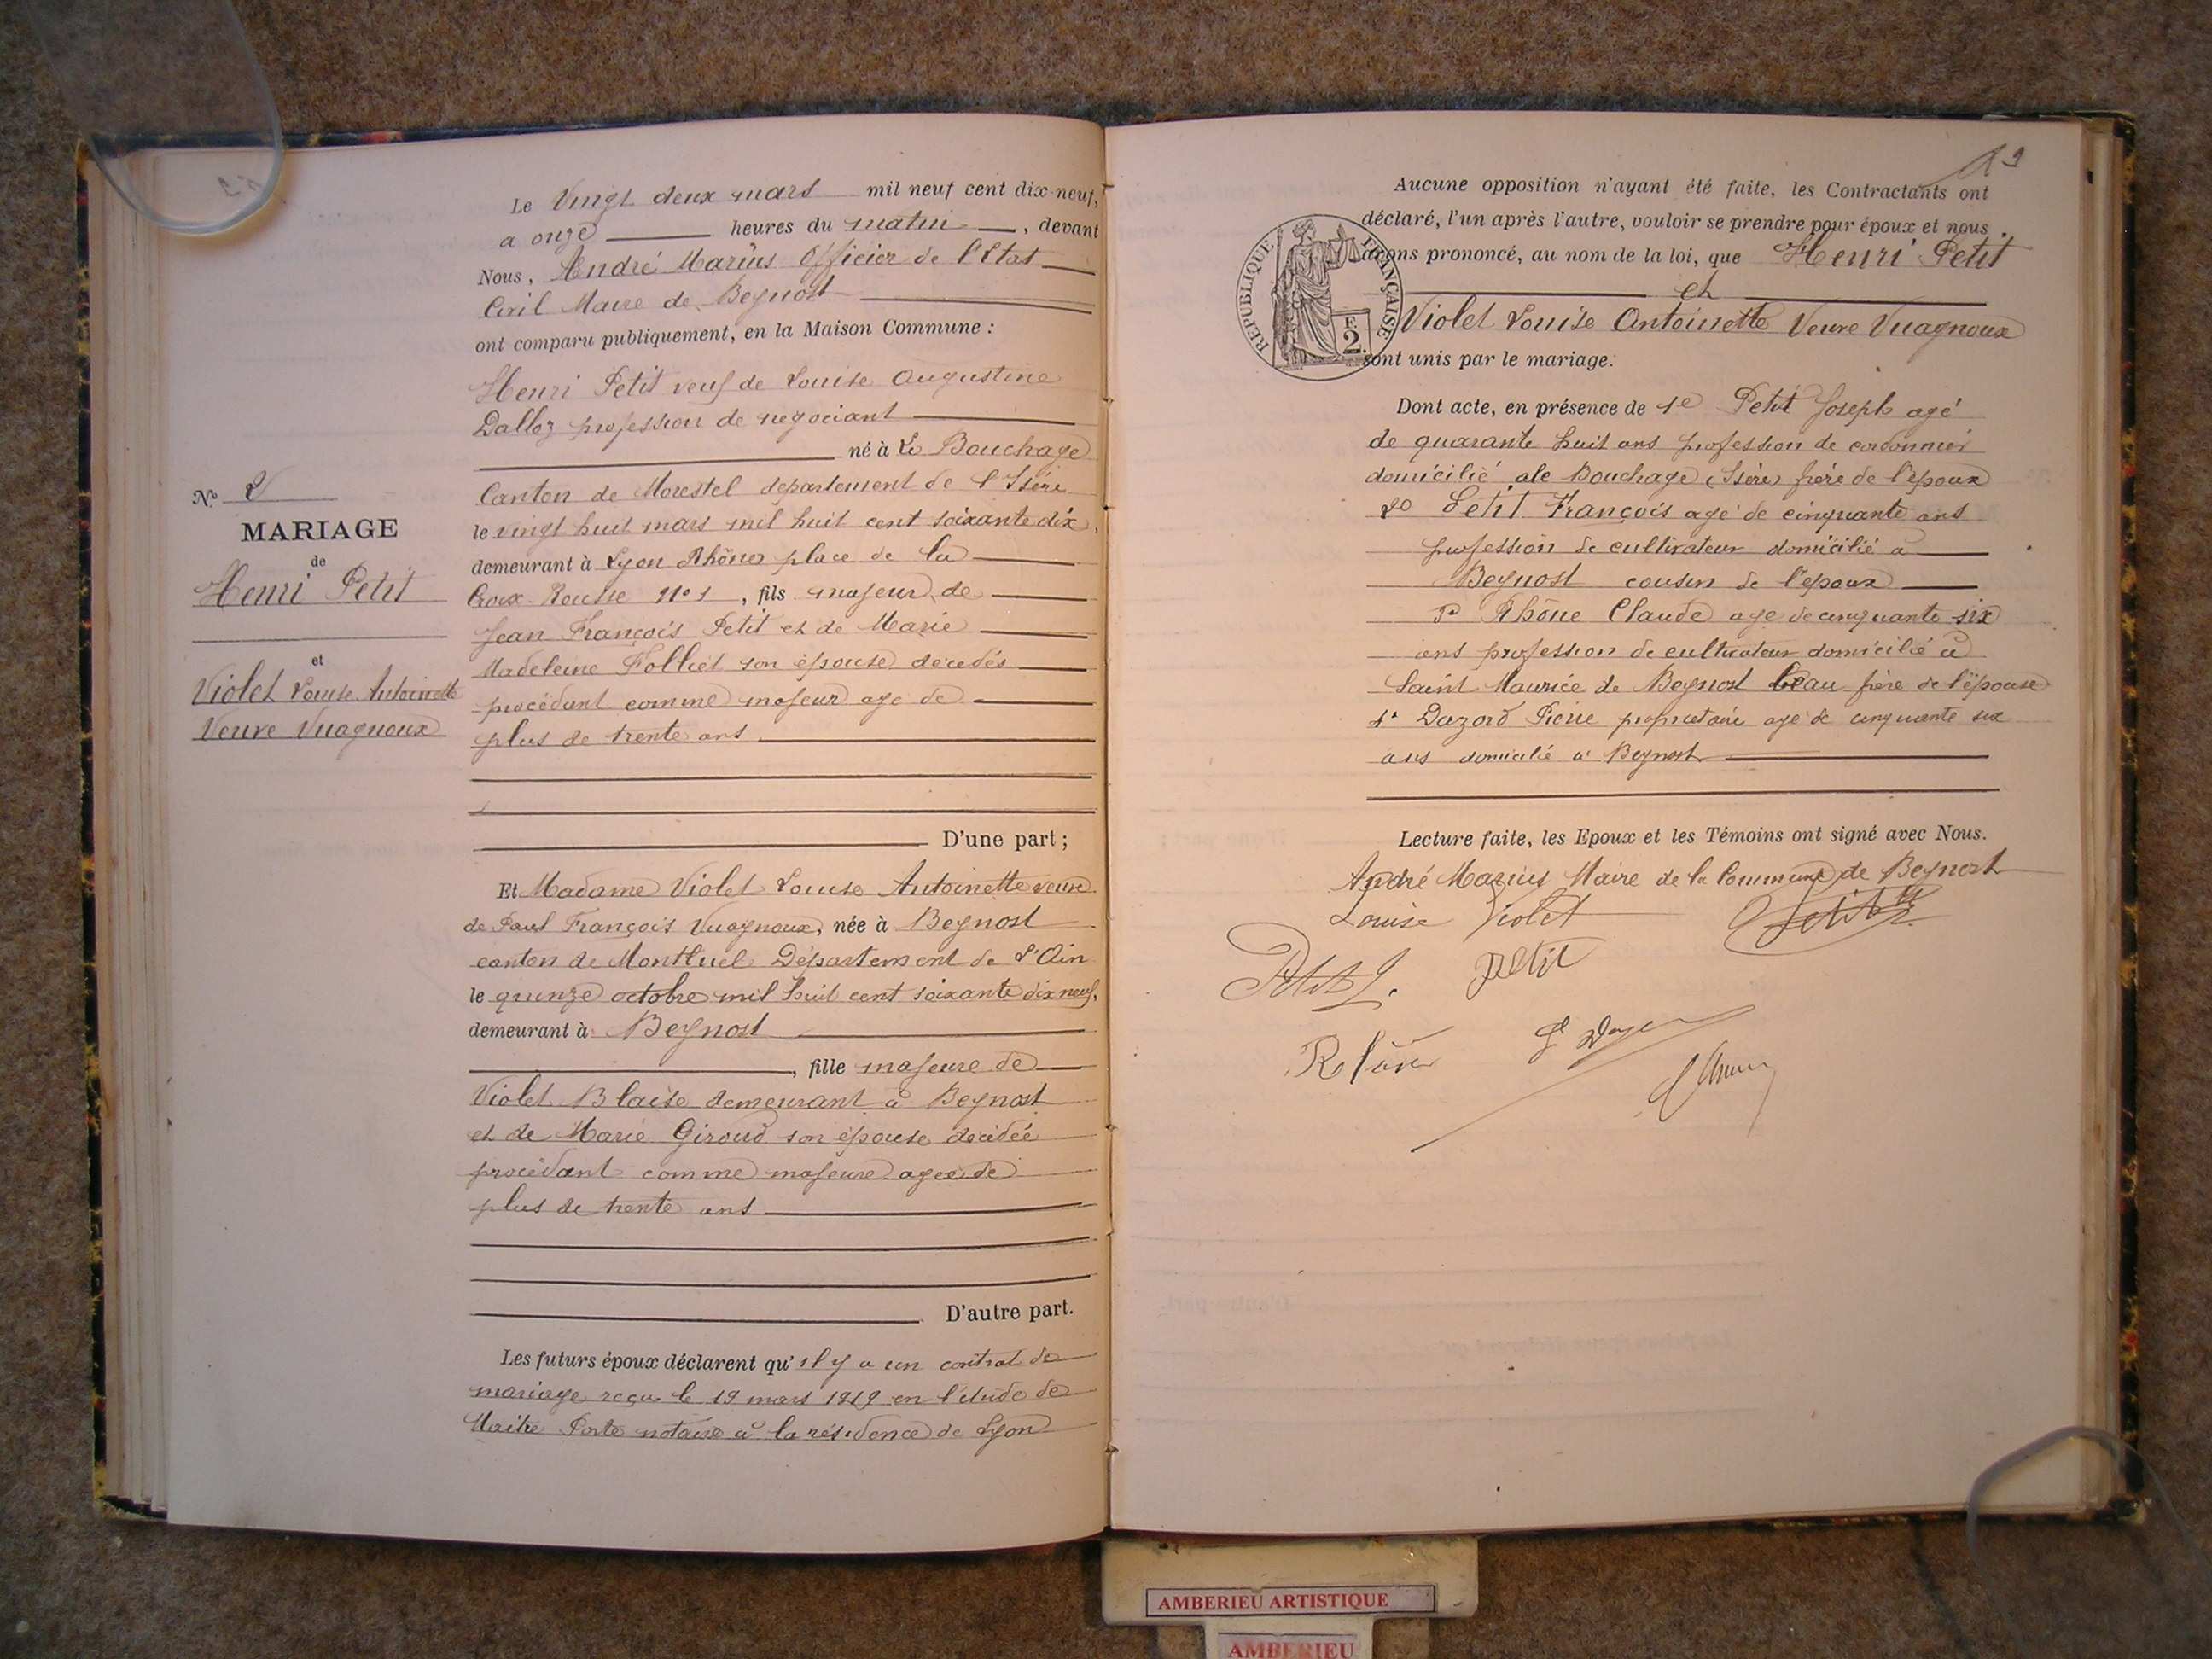 Le Vingt deux mars mil neuf cent dix-neuf,
a onze heures du matin, devant
Nous, André Marius Officier de l'Etat
Civil Maire de Beynost
ont comparu publiquement, en la Maison Commune :
Henri Petit veuf de Louise Augustine
Dalloz profession de negociant
né à Le Bouchage
Canton de Morestel departement de l'Isère
le vingt huit mars mil huit cent soixante dix,
demeurant à Lyon Rhône place de la
Croix-Rousse n° 1, fils majeur de
Jean François Petit et de Marie
Madeleine Folliet son épouse décedés
procédant comme majeur age de
plus de trente ans
D'une part ;
N° 2
MARIAGE
de
Henri Petit
et
Violet Louise Antoinette
Veuve Vuagnoux
Et Madame Violet Louise Antoinette veuve
de Paul François Vuagnoux, née à Beynost
canton de Montluel Département de l'Ain
le quinze octobre mil huit cent soixante dix neuf,
demeurant à Beynost
, fille majeure de
Violet Blaise demeurant à Beynost
et de Marie Giroud son épouse décédée
procédant comme majeure agée de
plus de trente ans
D'autre part.
Les futurs époux déclarent qu'il y a un contrat de
mariage reçu le 19 mars 1919 en l'étude de
Maitre Porte notaire à la résidence de Lyon
Aucune opposition n'ayant été faite, les Contractants ont
déclaré, l'un après l'autre, vouloir se prendre pour époux et nous
avons prononcé, au nom de la loi, que Henri Petit
et
Violet Louise Antoinette Veuve Vuagnoux
sont unis par le mariage.
REPUBLIQUE FRANÇAISE
F.
2
Dont acte, en présence de 1e Petit Joseph agé
de quarante huit ans profession de cordonnier
domicilié a le Bouchage (Isère) frère de l'époux
2o Petit François agé de cinquante ans
profession de cultivateur domicilié à
Beynost cousin de l'époux
3e Rhône Claude age de cinquante six
ans profession de cultivateur domicilié à
Saint Maurice de Beynost beau frère de l'épouse
4e Dazord Pierre proprietaire age de cinquante six
ans domicilié à Beynost
Lecture faite, les Epoux et les Témoins ont signé avec Nous.
André Marius Maire de la Commune de Beynost
Louise Violet Petit H
Petit J. petit
AMBERIEU ARTISTIQUE
AMBERIEU